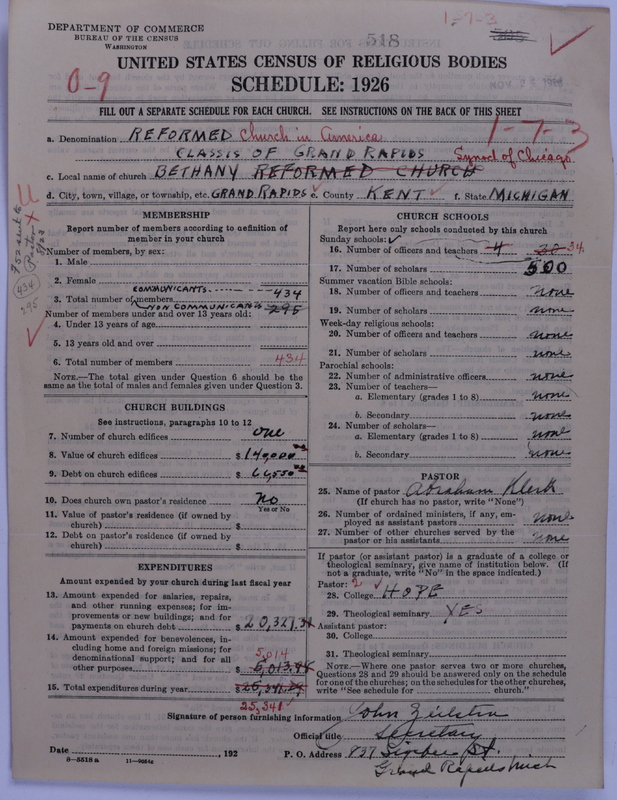 DEPARTMENT OF COMMERCE
BUREAU OF THE CENSUS
WASHINGTON
518
1-7-3
UNITED STATES CENSUS OF RELIGIOUS BODIES
SCHEDULE: 1926
0-9
FILL OUT A SEPARATE SCHEDULE FOR EACH CHURCH. SEE INSTRUCTIONS ON THE BACK OF THIS SHEET
a. Denomination REFORMED Church in America 1-7-3
CLASSIS OF GRAND RAPIDS Synod of Chicago
c. Local name of church BETHANY REFORMED CHURCH
d. City, town, village, or township, etc. GRAND RAPIDS e. County KENT f. State MICHIGAN
MEMBERSHIP
Report number of members according to definition of
member in your church
Number of members, by sex:
1. Male
2. Female
COMMUNICANTS
3. Total number of members 434
NON COMMUNICANTS 295
Number of members under and over 13 years old:
4. Under 13 years of age
5. 13 years old and over
6. Total number of members 434
NOTE.—The total given under Question 6 should be the
same as the total of males and females given under Question 3.
434
295
CHURCH BUILDINGS
See instructions, paragraphs 10 to 12
7. Number of church edifices one
8. Value of church edifices $ 140,000
9. Debt on church edifices $ 66,550
10. Does church own pastor's residence No
Yes or No
11. Value of pastor's residence (if owned by
church) $
12. Debt on pastor's residence (if owned by
church) $
EXPENDITURES
Amount expended by your church during last fiscal year
13. Amount expended for salaries, repairs,
and other running expenses; for im-
provements or new buildings; and for
payments on church debt $ 20,327.
14. Amount expended for benevolences, in-
cluding home and foreign missions; for
denominational support; and for all 5,014
other purposes $ 5,013.
15. Total expenditures during year $
25,341
CHURCH SCHOOLS
Report here only schools conducted by this church
Sunday schools:
16. Number of officers and teachers 4 30 34
17. Number of scholars 500
Summer vacation Bible schools:
18. Number of officers and teachers none
19. Number of scholars none
Week-day religious schools:
20. Number of officers and teachers none
21. Number of scholars none
Parochial schools:
22. Number of administrative officers none
23. Number of teachers—
a. Elementary (grades 1 to 8) none
b. Secondary none
24. Number of scholars—
a. Elementary (grades 1 to 8) none
b. Secondary none
PASTOR
25. Name of pastor Abraham Klerk
(If church has no pastor, write "None")
26. Number of ordained ministers, if any, em-
ployed as assistant pastors none
27. Number of other churches served by the
pastor or his assistants none
If pastor (or assistant pastor) is a graduate of a college or
theological seminary, give name of institution below. (If
not a graduate, write "No" in the space indicated.)
Pastor: 2
28. College HOPE
29. Theological seminary YES
Assistant pastor:
30. College
31. Theological seminary
NOTE.—Where one pastor serves two or more churches,
Questions 28 and 29 should be answered only on the schedule
for one of the churches; on the schedules for the other churches,
write "See schedule for church."
Signature of person furnishing information John Zeilstra
Official title Secretary
Date , 192 P. O. Address 837 St.
8-5518 a Grand Rapids Mich